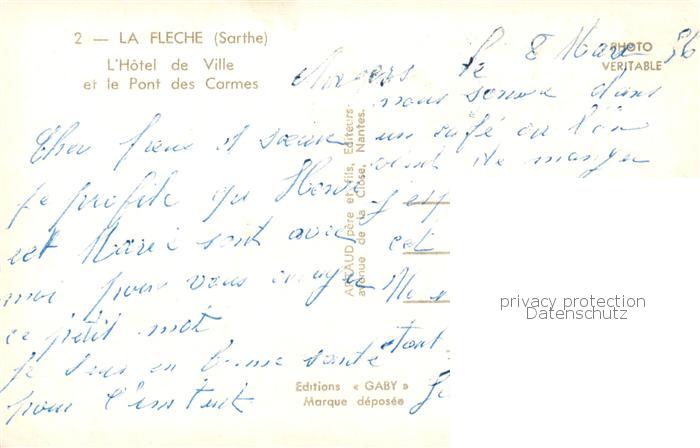 2 — LA FLECHE (Sarthe)
L'Hôtel de Ville
et le Pont des Carmes
PHOTO
VERITABLE
Angers le 8 Mars 56
Cher frère et soeur
je profite que Hervé
et Marie sont avec
moi pour vous envoyer
ce petit mot
je suis en bonne santé
pour l'instant
nous somme dans
un café ou l'on
vient de manger
j'esp
et
étant
ARTAUD père et fils, Editeurs
avenue de la Close, Nantes.
Editions « GABY »
Marque déposée
privacy protection
Datenschutz